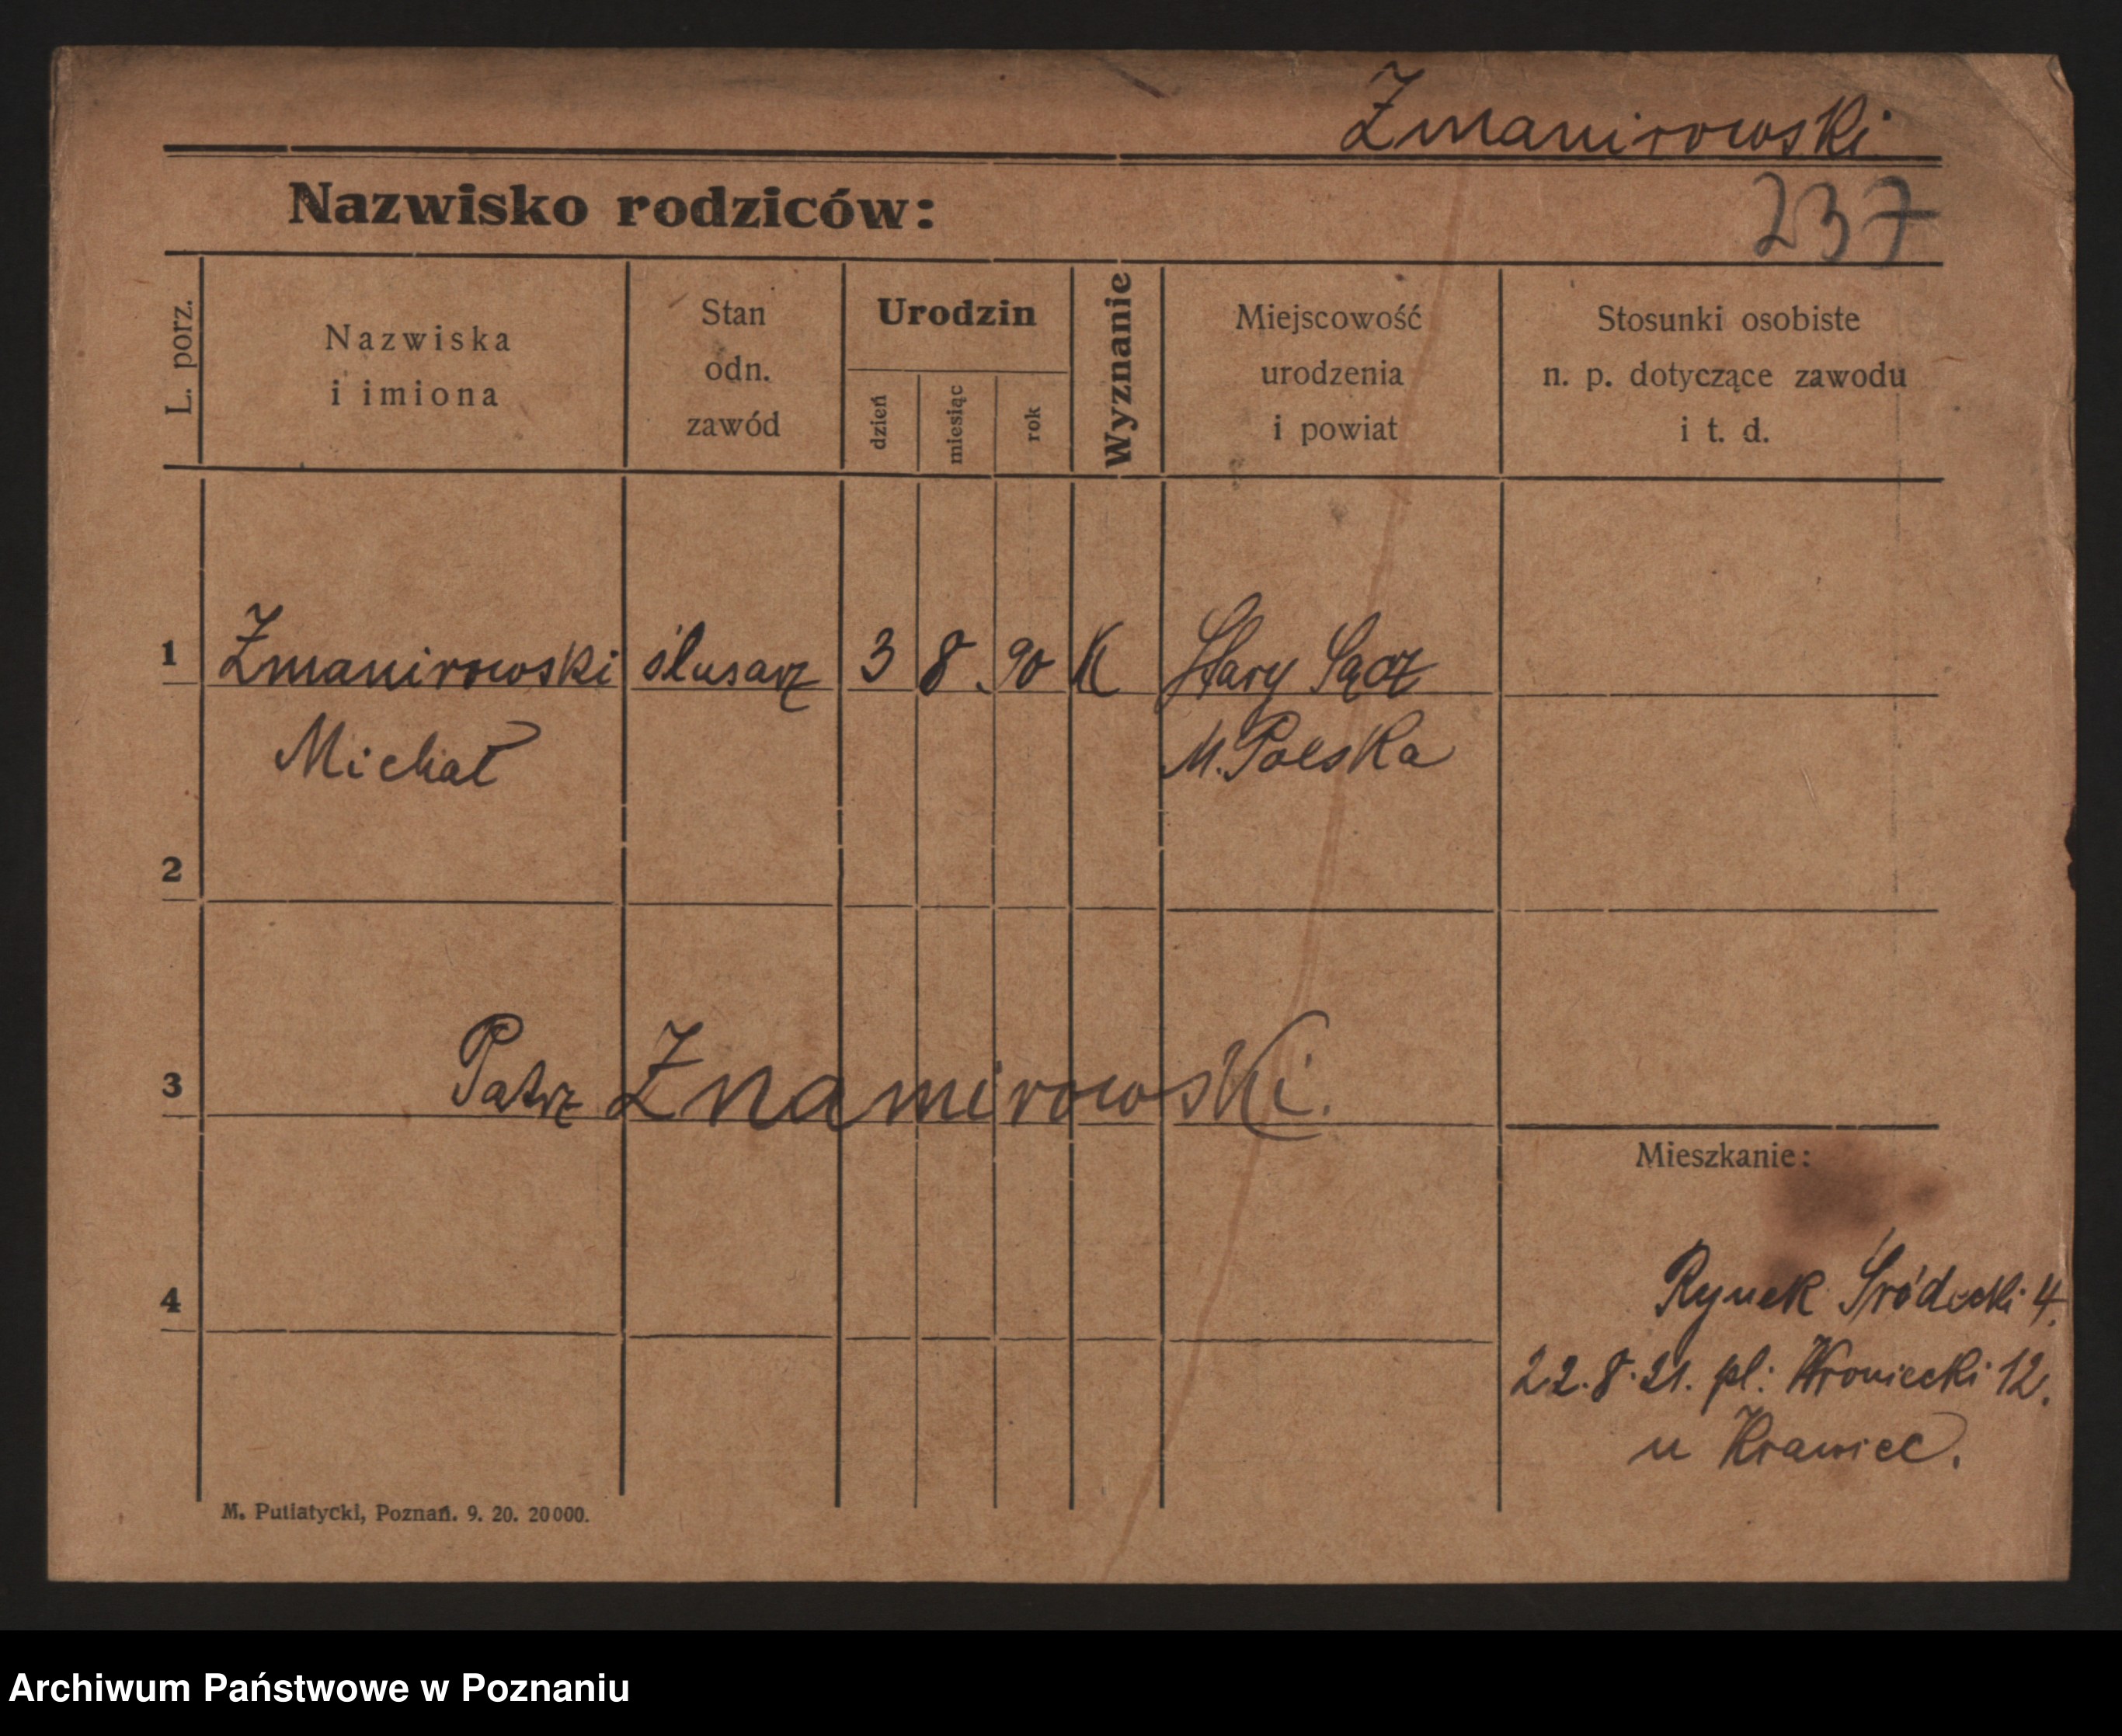 Zmanirowski
Nazwisko rodziców:
237
L. porz.
Nazwiska
i imiona
Stan
odn.
zawód
Urodzin
dzień
miesiąc
rok
Wyznanie
Miejscowość
urodzenia
i powiat
Stosunki osobiste
n. p. dotyczące zawodu
i t. d.
1 Zmanirowski ślusarz 3 8. 90 K Stary Sącz
Michał M. Polska
2
3 Patrz Znamirowski.
Mieszkanie:
4 Rynek Śródecki 4.
22.8.21. pl: Wroniecki 12.
u Krawiec.
M. Putiatycki, Poznań. 9. 20. 20000.
Archiwum Państwowe w Poznaniu